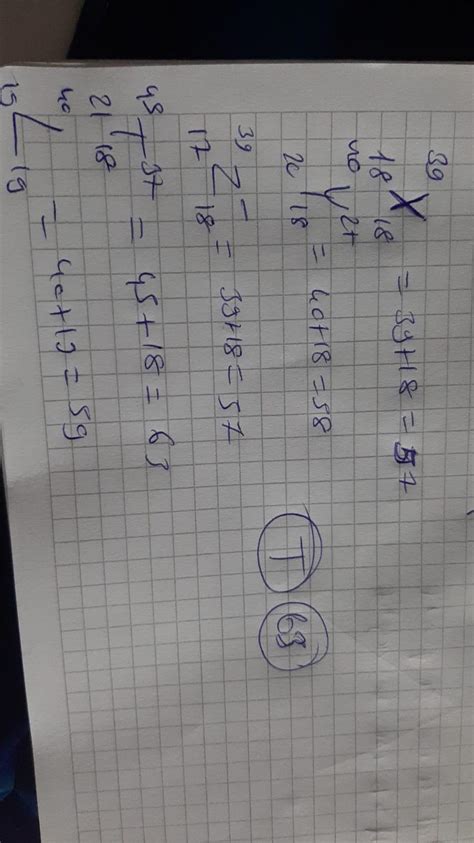 ³⁹₁₈X₁₈ = 39+18 = 57
⁴⁰₂₀Y²⁺₁₈ = 40+18 = 58
³⁹₁₇Z⁻₁₈ = 39+18 = 57
⁴⁵₂₁T³⁺₁₈ = 45+18 = 63
⁴⁰₁₉L₁₉ = 40+19 = 59
T 63